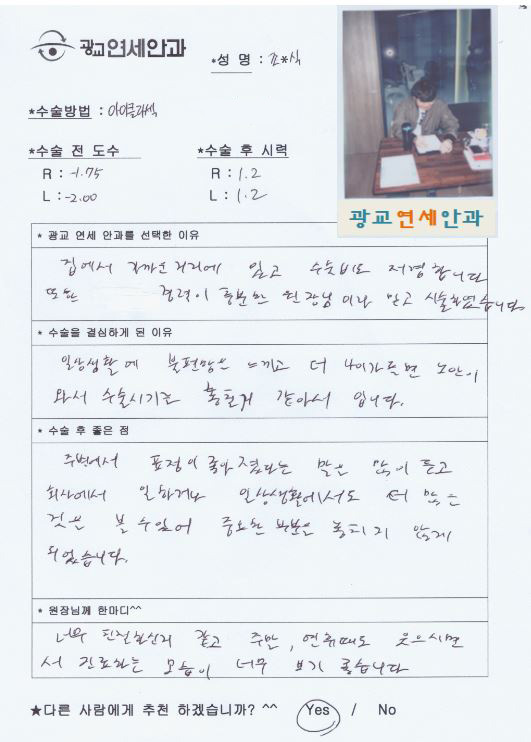 광교연세안과
*성 명 : 조*식
*수술방법 : 아이클라섹
*수술 전 도수
*수술 후 시력
R : -1.75
R : 1.2
L : -2.00
L : 1.2
광교연세안과
* 광교 연세 안과를 선택한 이유
집에서 가까운 거리에 있고 수술비도 저렴합니다
또한 경력이 충분한 원장님이라 믿고 시술하였습니다
* 수술을 결심하게 된 이유
일상생활에 불편함을 느끼고 더 나이가 들면 노안이
와서 수술시기를 놓칠거 같아서 입니다.
* 수술 후 좋은 점
주변에서 표정이 좋아 졌다는 말을 많이 듣고
회사에서 일하거나 일상생활에서도 더 많은
것을 볼 수 있어 중요한 부분을 놓티지 않게
되었습니다.
* 원장님께 한마디^^
너무 친절하신거 같고 주말, 연휴때도 웃으시면
서 진료하는 모습이 너무 보기 좋습니다
★다른 사람에게 추천 하겠습니까? ^^ Yes / No